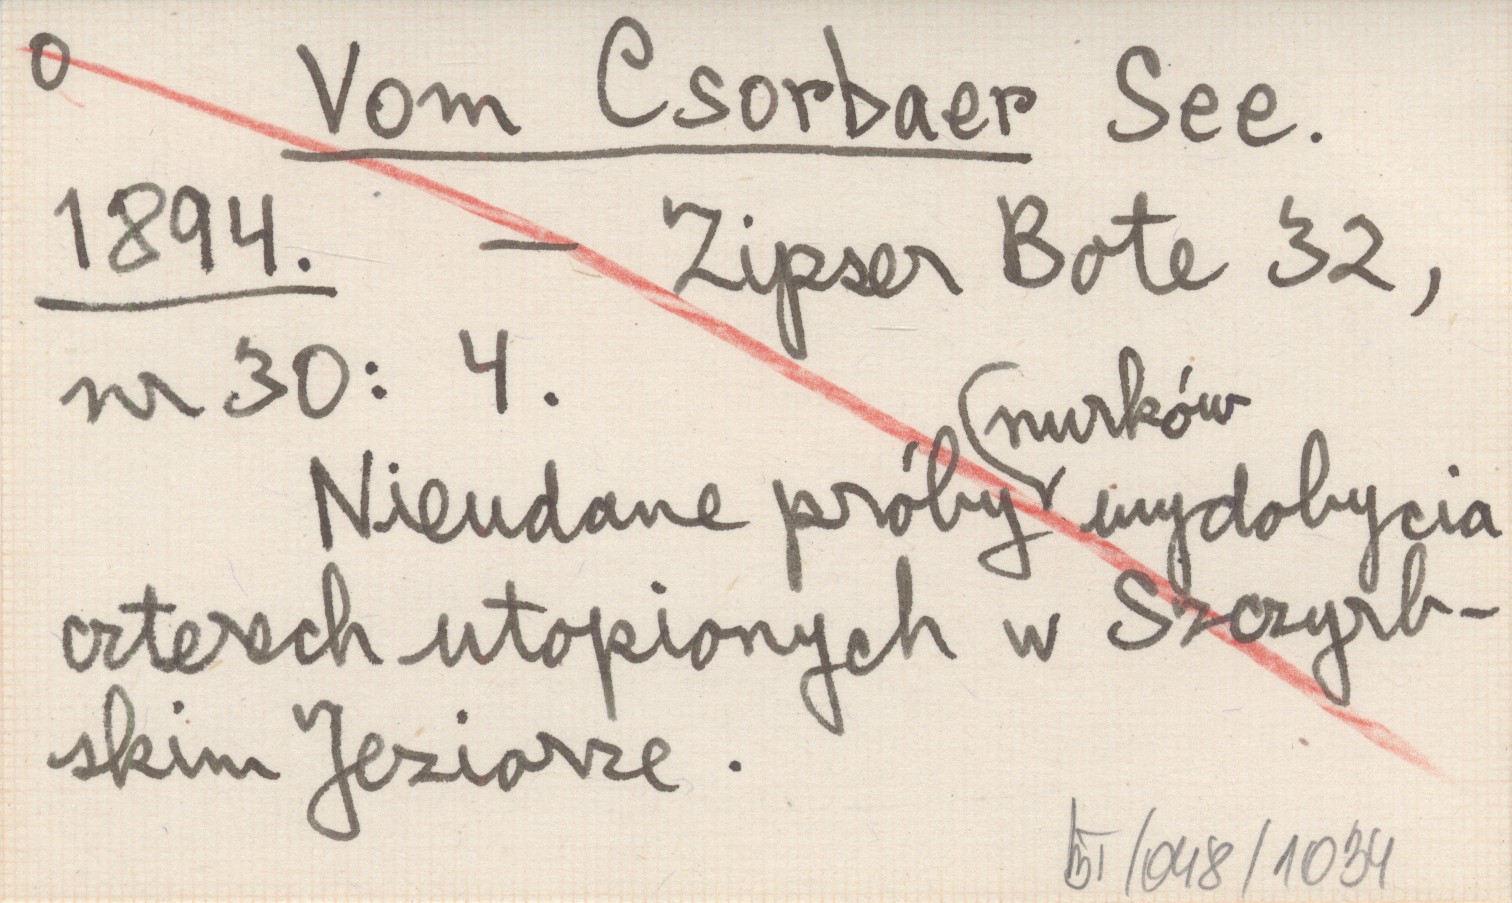 o Vom Csorbaer See.
1894. — Zipser Bote 32,
nr 30: 4.
nurków
Nieudane próby wydobycia
czterech utopionych w Szczyrb-
skim Jeziorze.
/048/1034